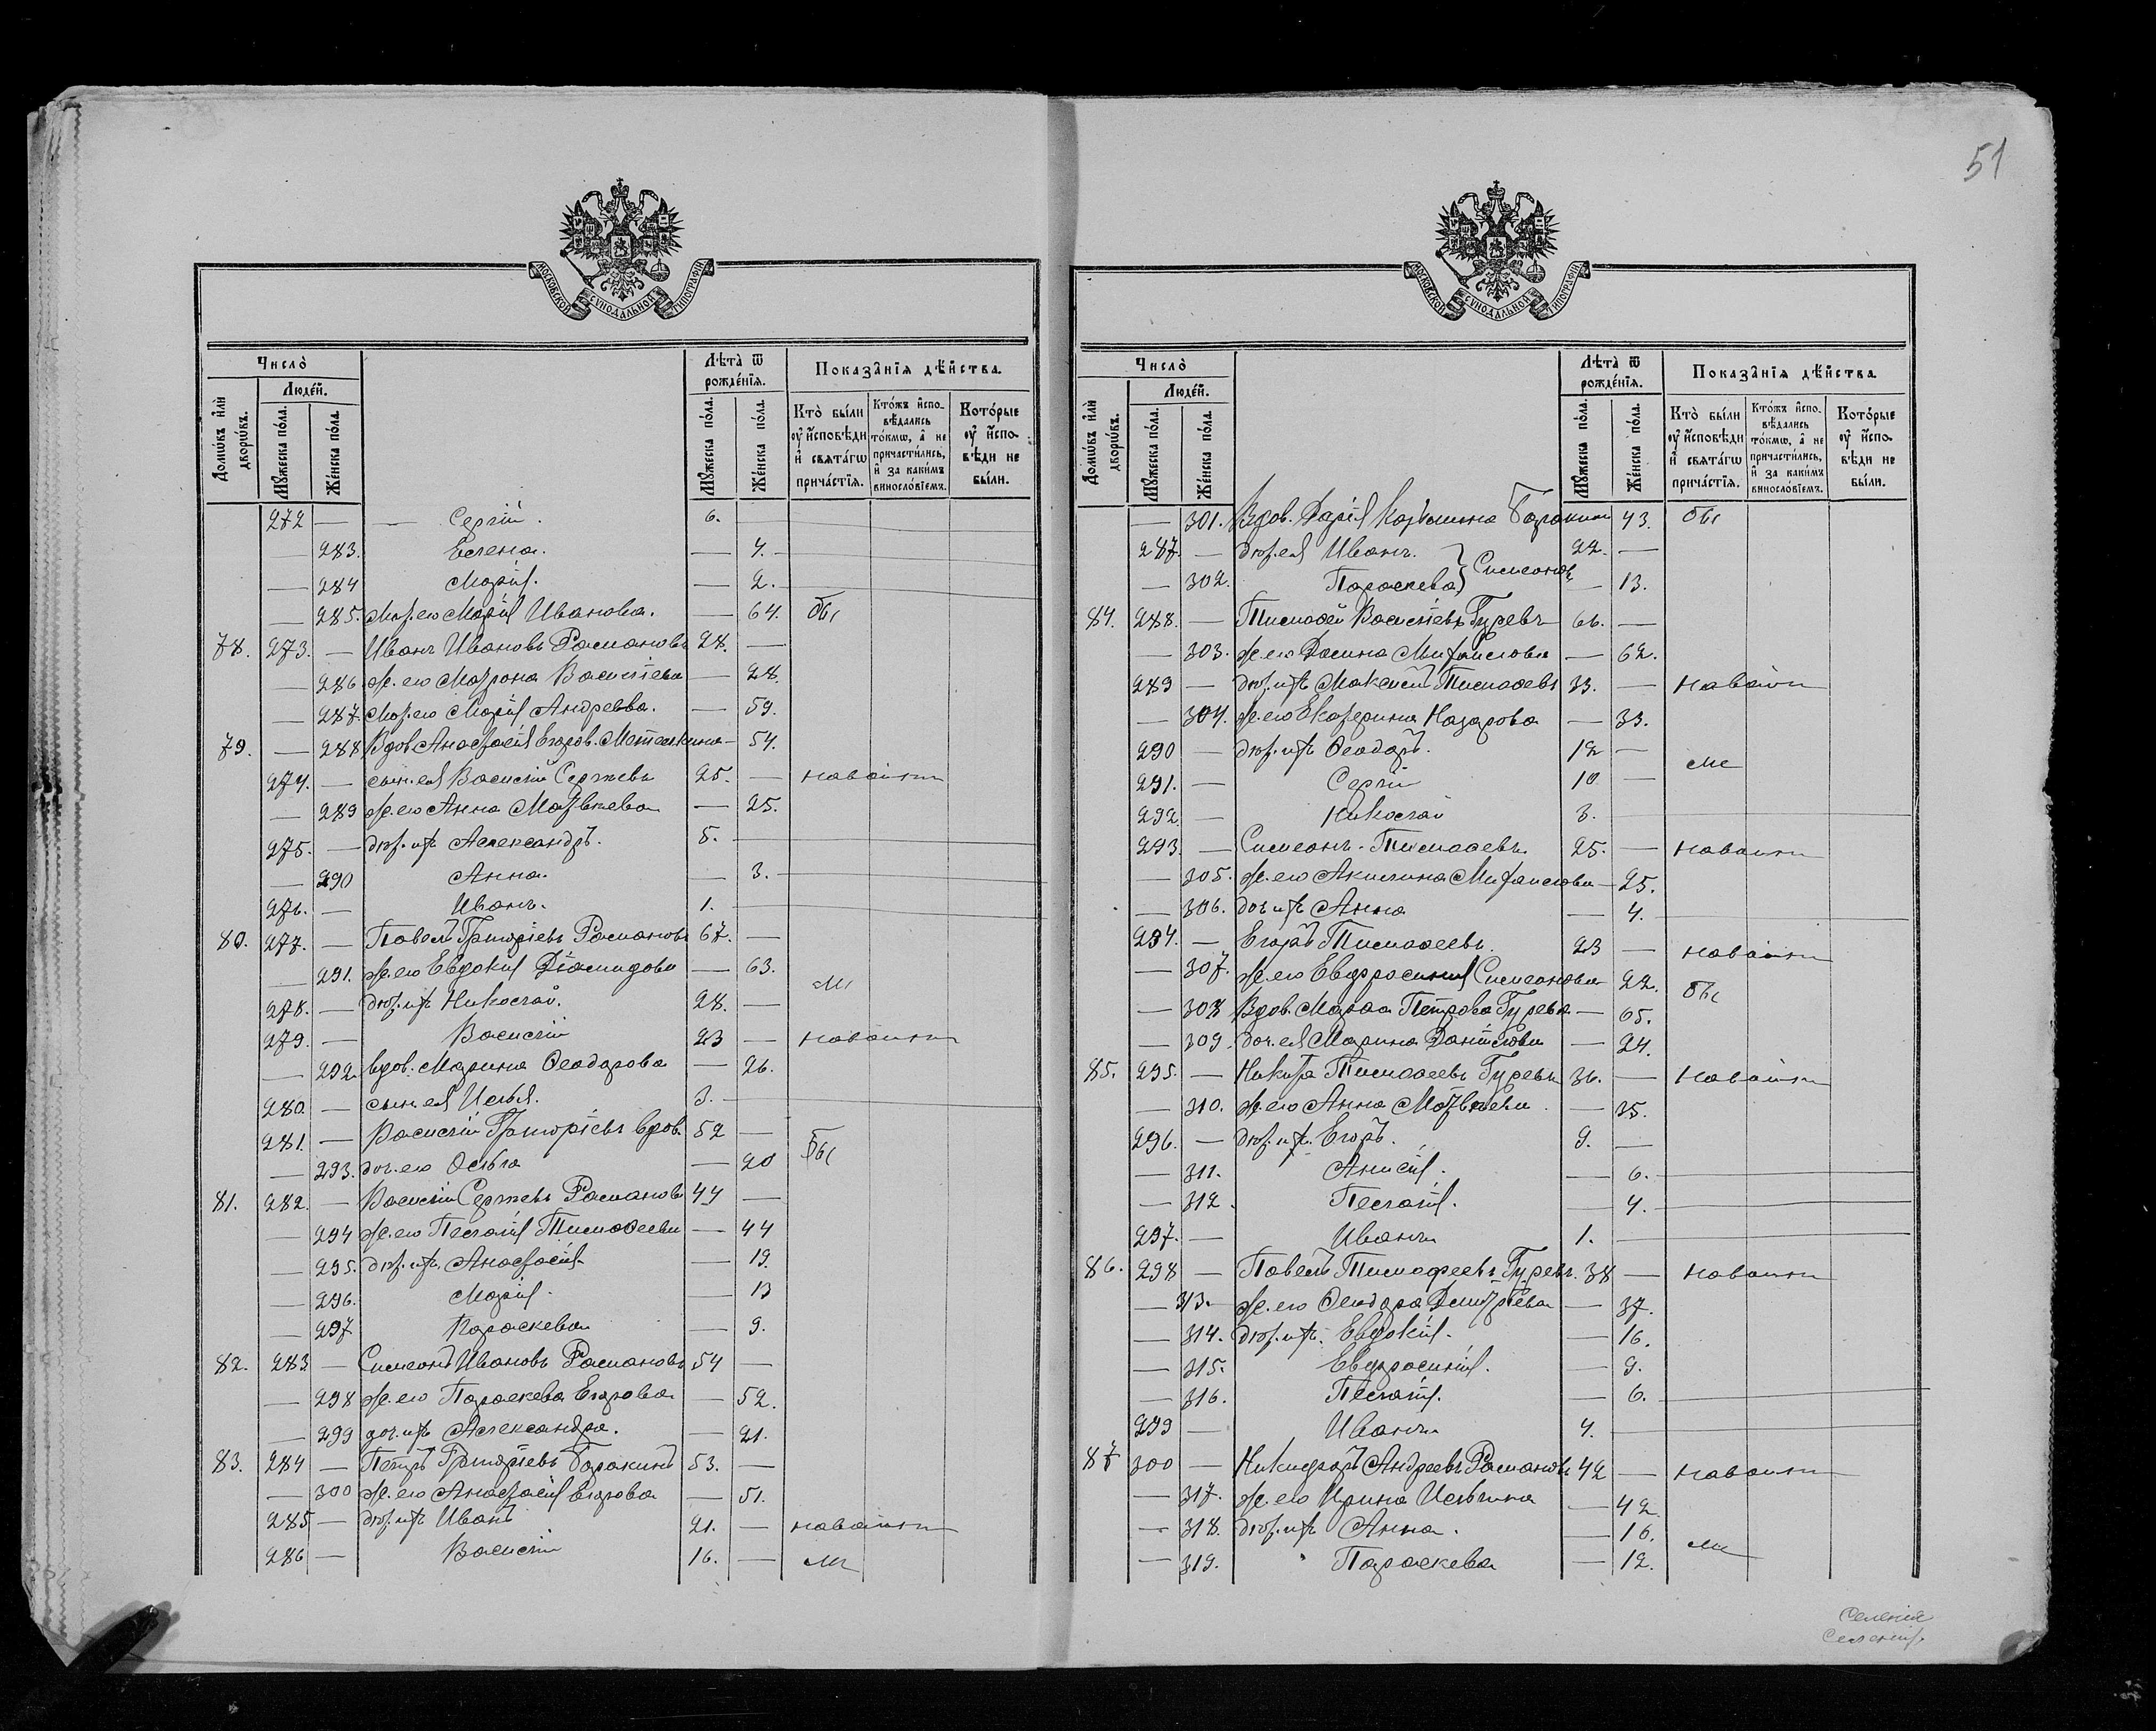 51
МОСКОВСКОЙ СѴНОДАЛЬНОЙ ТИПОГРАФІИ
Число̀
Людéй.
Домѡ́въ и҆лѝ дворѡ́въ.
Мꙋ́жеска по́ла.
Же́нска по́ла.
Лѣта̀ ѿ рожде́нїѧ.
Мꙋ́жеска по́ла.
Же́нска по́ла.
Показа̑нїѧ дѣ́йства
Кто̀ бы́ли ᲂу҆ и҆сповѣди и҆ свѧта́гѡ прича́стїѧ.
Кто́жъ и҆сповѣ́дались то́кмѡ, а҆ не причасти́лись, и҆ за каки́мъ винослові́емъ.
Кото́рые ᲂу҆ и҆сповѣди не бы́ли.
272 — — Сергій. 6.
— 283. Елена. — 4.
— 284 Марія. — 2.
— 285. Мат. его Марія Иванова. — 64. Обѣ
78. 273. — Иванъ Ивановъ Романовъ 28. —
— 286. Ж. его Матрона Васильева — 28.
— 287. Мат. его Марія Андреева. — 59.
79. — 288 Вдов. Анастасія Егоров. Метелкина — 54.
274. — сын. ея Василій Сергѣевъ 25. —
— 289 Ж. его Анна Матвѣева — 25.
275. — дѣт. ихъ Александръ. 5.
— 290 Анна. — 3.
276. — Иванъ. 1.
80. 277. — Павелъ Григорьевъ Романовъ 67. —
— 291. Ж. его Евдокія Діомидова — 63.
278. — дѣт. ихъ Николай. 28. —
279. — Василій 23 —
— 292 вдов. Марина Ѳеодорова — 26.
280. — сын. ея Илья. 3.
281. — Василій Григорьевъ вдов. 52 —
— 293. доч. его Ольга — 20 Обѣ
81. 282. — Василій Сергѣевъ Романовъ 44 —
— 294 Ж. его Пелагія Тимоѳеева — 44
— 295. дѣт. ихъ Анастасія — 19.
— 296. Марія. — 13
— 297 Параскева — 9.
82. 283 — Симеонъ Ивановъ Романовъ 54 —
— 298 Ж. его Параскева Егорова — 52.
— 299 доч. ихъ Александра. — 21.
83. 284 — Петръ Григорьевъ Баракинъ 53. —
— 300 Ж. его Анастасія Егорова — 51.
285 — дѣт. ихъ Иванъ 21. —
286 — Василій 16. —
МОСКОВСКОЙ СѴНОДАЛЬНОЙ ТИПОГРАФІИ
Число̀
Людéй.
Домѡ́въ и҆лѝ дворѡ́въ.
Мꙋ́жеска по́ла.
Же́нска по́ла.
Лѣта̀ ѿ рожде́нїѧ.
Мꙋ́жеска по́ла.
Же́нска по́ла.
Показа̑нїѧ дѣ́йства
Кто̀ бы́ли ᲂу҆ и҆сповѣди и҆ свѧта́гѡ прича́стїѧ.
Кто́жъ и҆сповѣ́дались то́кмѡ, а҆ не причасти́лись, и҆ за каки́мъ винослові́емъ.
Кото́рые ᲂу҆ и҆сповѣди не бы́ли.
— 301. Вдов. Дарія 43. Обѣ
287. — дѣт. ея Иванъ. 22. —
— 302. Параскева — 13.
84. 288. — Тимоѳей Васильевъ Гуревъ 66. —
— 303. Ж. его Домна Михайлова — 62.
289 — дѣт. ихъ Максимъ Тимоѳеевъ 33. —
— 304. Ж. его Екатерина Назарова — 33.
290 — дѣт. ихъ Ѳеодоръ. 12 —
291. — Сергій 10 —
292. — Николай 3.
293. — Симеонъ Тимоѳеевъ 25. —
— 305. Ж. его Акилина Михайлова — 25.
— 306. доч. ихъ Анна — 4.
294. — Егоръ Тимоѳеевъ. 23 —
— 307. Ж. его Евфросинія Симеонова — 22. Обѣ
— 308 Вдов. Марѳа Петрова Гурева — 65.
— 309. доч. ея Марина Данилова — 24.
85. 295. — Никита Тимоѳеевъ Гуревъ 36. —
— 310. Ж. его Анна Матвѣева — 35.
296. — дѣт. ихъ. Егоръ. 9. —
— 311. Анисія. — 6.
— 312. Пелагія. — 4.
297. — Иванъ 1.
86. 298 — Павелъ Тимофеевъ Гуревъ. 38 —
— 313. Ж. его Ѳеодора Димитріева — 37.
— 314. дѣт. ихъ. Евдокія. — 16.
— 315. Евфросинія. — 9.
— 316. Пелагія. — 6.
299 — Иванъ 4.
87 300 — Никифоръ Андреевъ Романовъ 42 —
— 317. Ж. его Ирина Ильина — 42.
— 318. дѣт. ихъ Анна. — 16.
— 319. Параскева — 12.